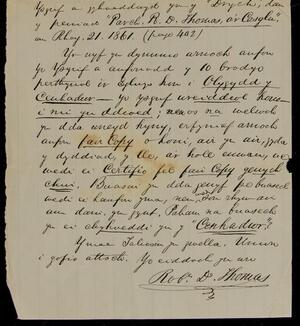 Ysgrif a ymddangosodd yn y "Drych", dan
y penawd "Parch. R. D. Thomas, a'r Casglu",
am Rhag. 21. 1861. (page 402)
Yr wyf yn dymuno arnoch anfon
yr Ysgrif a anfonodd y 10 brodyr
perthynol i'r Eglwys hon i Olygydd y
Cenhadwr — yr Ysgrif wreiddiol
i mi yn ddioed; neu os na welwch
yn dda wneyd hyny, erfyniaf arnoch
anfon fair Copy o honi, air yn air, gyda
y dyddiad, y lle, a'r holl enwau, ac
wedi ei Certifio fel fair Copy genych
chwi. Buasai yn dda genyf pe buasech
wedi ei hanfon yma,
am dani. yn gynt. Paham na buasech
yn ei chyhoeddi yn y "Cenhadwr?"
Y mae Talicsin yn gwella. Unwn
i gofio attoch. Yr eiddoch yn
Robt. D. Thomas